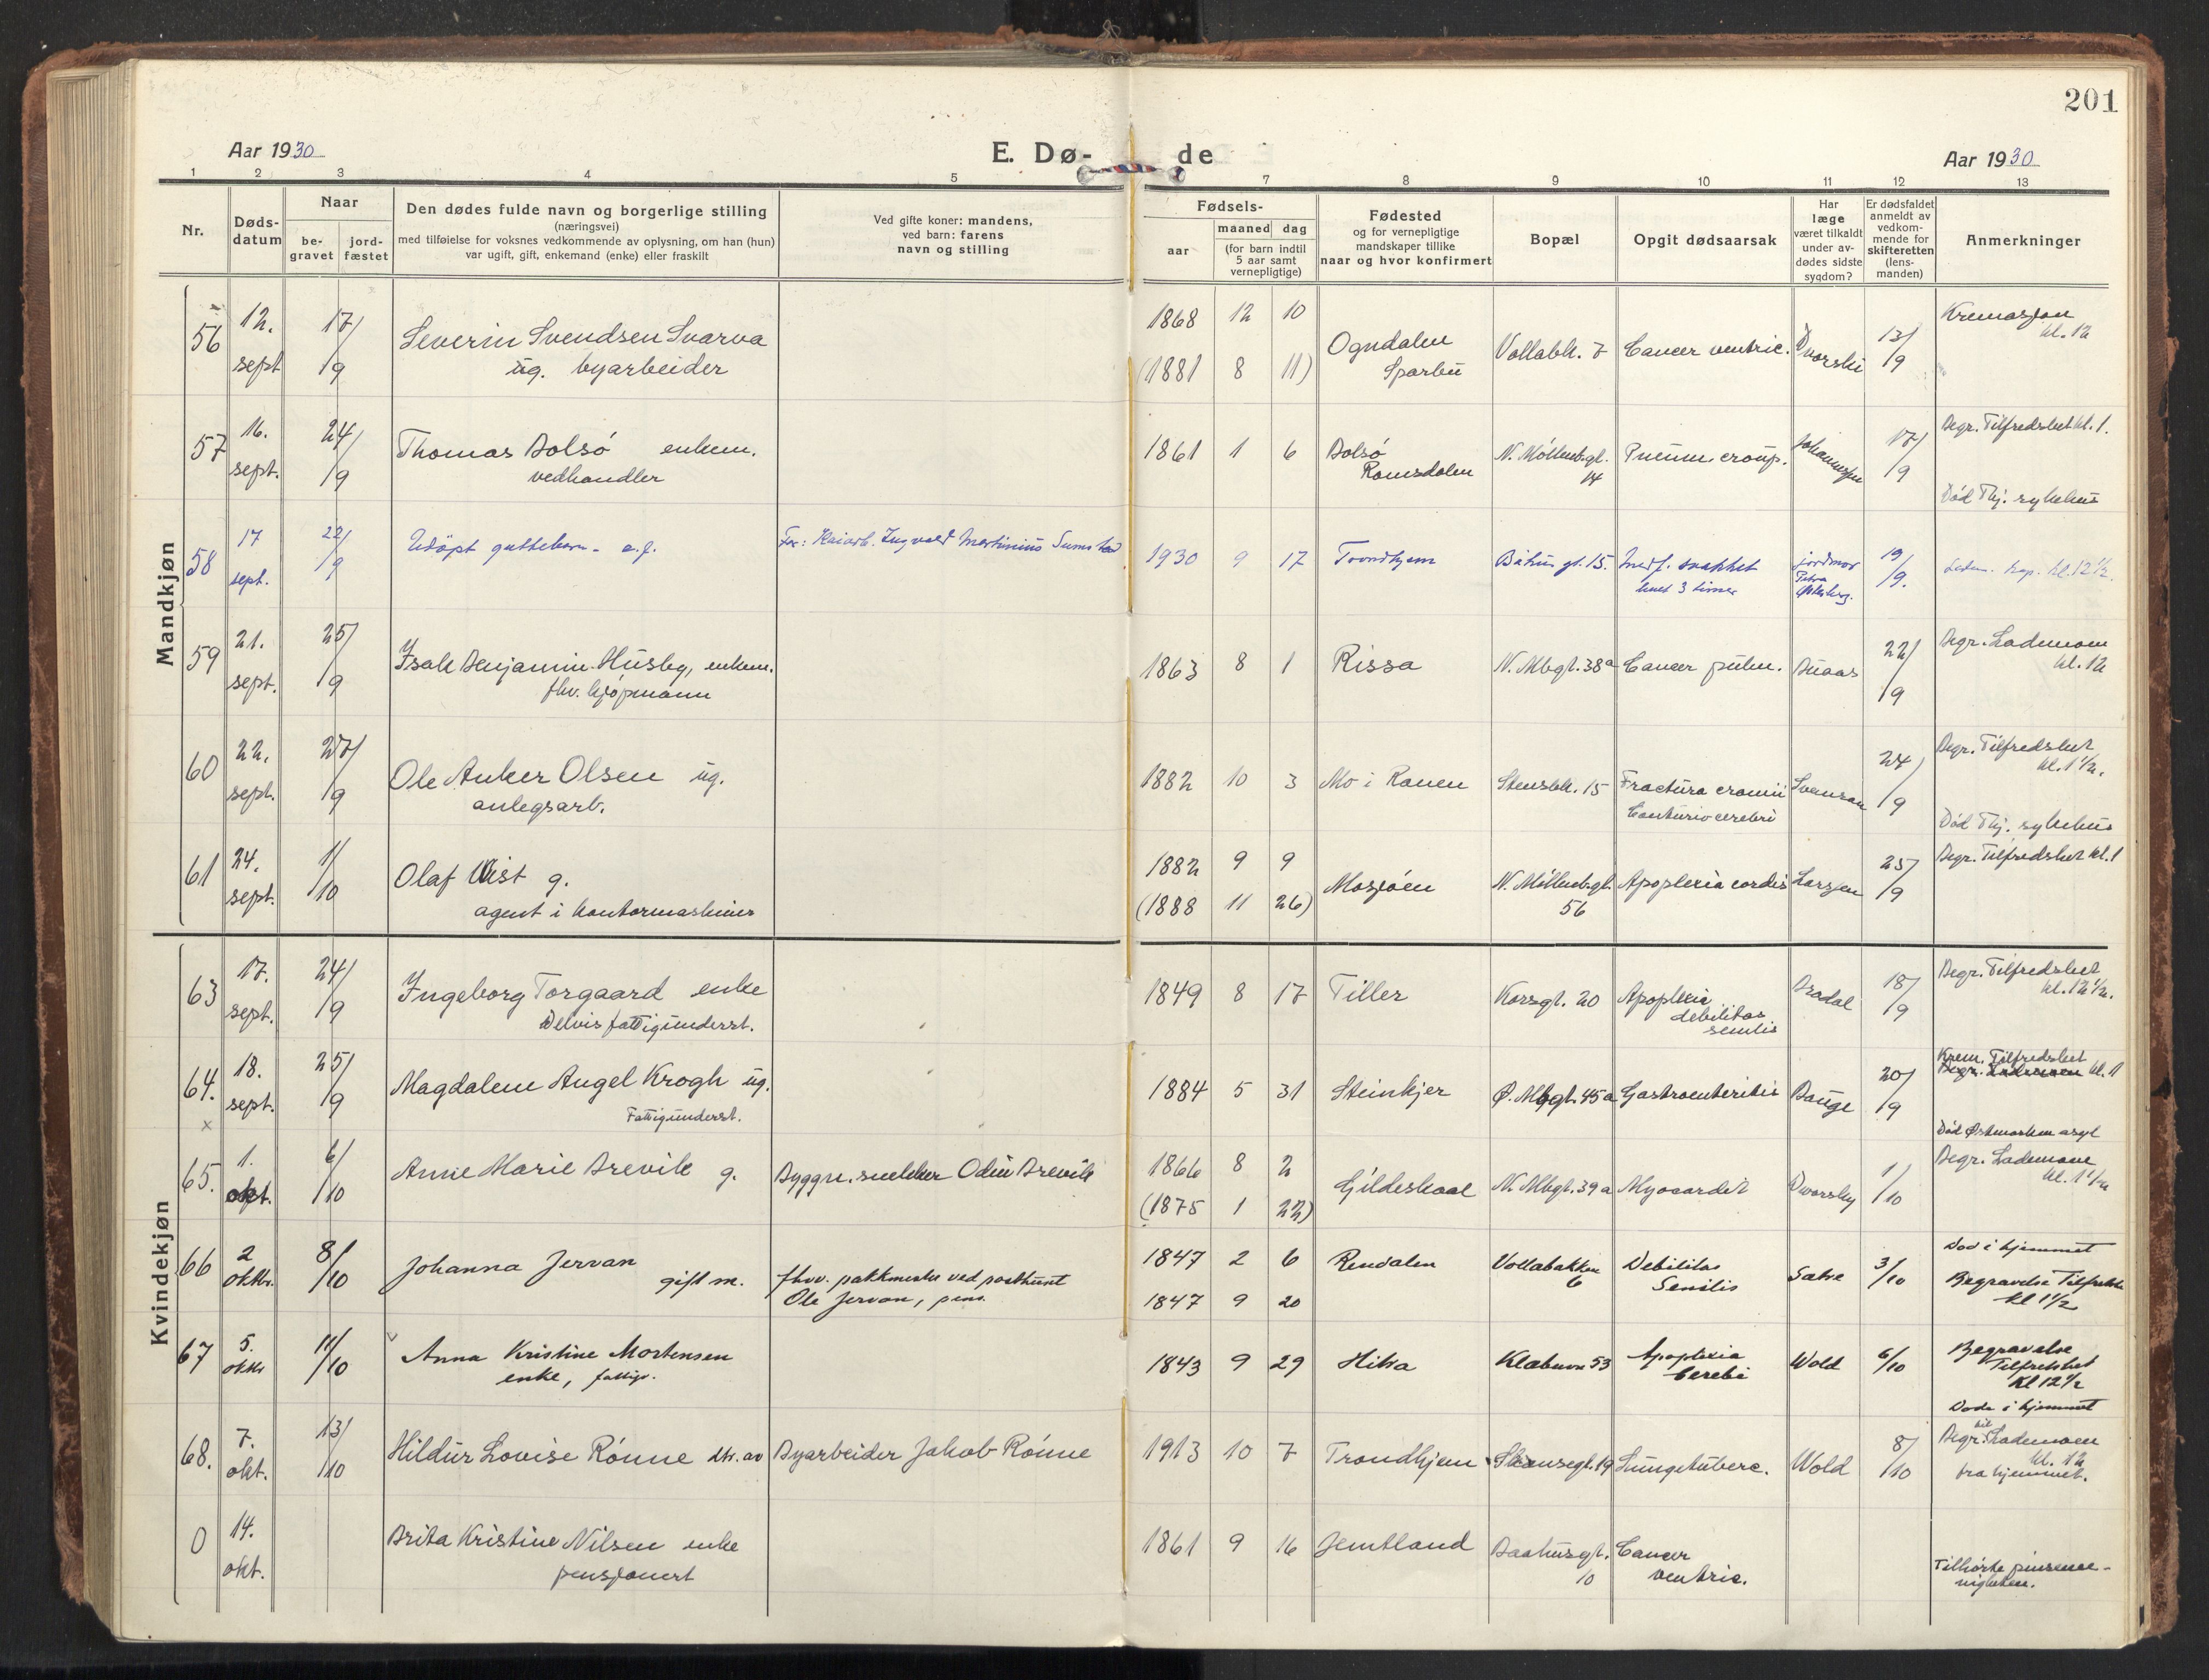 201
Aar 1930
E. Dø-
de
Aar 1930
1 2 3 4 5 7 8 9 10 11 12 13
Nr.
Døds-
datum
Naar
be-
gravet
jord-
fæstet
Den dødes fulde navn og borgerlige stilling
(næringsvei)
med tilføielse for voksnes vedkommende av oplysning, om han (hun)
var ugift, gift, enkemand (enke) eller fraskilt
Ved gifte koner: mandens,
ved barn: farens
navn og stilling
Fødsels-
aar
maaned dag
(for barn indtil
5 aar samt
vernepligtige)
Fødested
og for vernepligtige
mandskaper tillike
naar og hvor konfirmert
Bopæl
Opgit dødsaarsak
Har
læge
været tilkaldt
under av-
dødes sidste
sygdom?
Er dødsfaldet
anmeldt av
vedkom-
mende for
skifteretten
(lens-
manden)
Anmerkninger
Mandkjøn
56 12. sept 17/9 Severin Svendsen Svarva
ug. byarbeider
1868 12 10
(1881 8 11)
Ogndalen
Sparbu
Vollabk. 7 Cancer ventric. Dvorski 13/9
Kremasjon
kl. 12
57 16. sept. 24/9 Thomas Bolsó enkem.
vedhandler
1861 1 6 Bolsó
Romsdalen
N. Móllenbgt.
14
Pneum. croup. Johannessen 17/9
Begr. Tilfredshet kl. 1.
Död Thj. sykehus
58 17 sept. 22/9 Udöpt guttebarn
Far: Kaiarb. Ingvald Martinius
1930 9 17 Trondhjem Båhus gt. 15. Medf. svakhet
levet 3 timer
jordmor
Petra
19/9.
kap. kl. 12 1/2.
59 21. sept. 25/9 Isak Benjamin Husby, enkem.
fhv. kjópmann
1863 8 1 Rissa N. Mbgt. 38a Cancer pulm. Buaas 22/9
Begr. Lademoen
kl. 12
60 22. sept. 27/9 Ole Anker Olsen ug.
anlegsarb.
1882 10 3 Mo i Ranen Stensbk. 15 Fractura cranii
cerebri
Svenson 24/9
Begr. Tilfredshet
kl. 1 1/2.
Död Thj. sykehus
61 24. sept. 1/10 Olaf Wist g.
agent i kontormaskiner
1882 9 9
(1888 11 26)
Mosjóen
N. Móllenbgt.
56
Apoplexia cordis Larssen 25/9
Begr. Tilfredshet kl. 1
Kvindekjøn
63 17. sept. 24/9 Ingeborg Torgaard enke
Delvis fattigunderst.
1849 8 17 Tiller Korsgt. 20 Apoplexia
debilitas
senilis
Bradal 18/9
Begr. Tilfredshet
kl. 12 1/2.
64. 18. sept. 25/9 Magdalene Angel Krogh ug.
Fattigunderst.
1884 5 31 Steinkjer Ø. Mbgt. 45a Gastroenteritis Bauge 20/9
Krem. Tilfredshet
Begr. Lademoen kl. 1
Död Østmarken asyl
65. 1. okt. 6/10 Anne Marie Brevik g.
Byggn. snekker Odin Brevik
1866 8 2
(1875 1 22)
Gildeskaal N. Mbgt. 39a Myocardit Dworsky 1/10
Begr. Lademoen
kl. 1 1/2
66 2 oktbr. 8/10 Johanna Jervan
gift m.
fhvv. pakkmester ved posthuset
Ole Jervan, pens.
1847 2 6
1847 9 20
Rendalen Vollabakken
6
Debilitas
Senilis
3/10
Død i hjemmet
Begravelse Tilfredshet
kl 1 1/2
67 5. oktbr 11/10 Anna Kristine Mortensen
enke, fattigv.
1843 9 29 Hitra 53 Apoplexia
Cerebi
Wold 6/10
Begravelse
Tilfredshet
kl 12 1/2
Døde i hjemmet
68. 7. okt. 13/10 Hildur Lovise Rónne dtr. av Byarbeider Jakob Rónne
1913 10 7 Trondhjem Stensegt. 19 Lungetuberc. Wold 8/10
Begr. Lademoen
kl. 12
fra hjemmet.
0 14. okt. Brita Kristine Nilsen enke
pensjonert
1861 9 16 Jemtland Baahusgt.
10
Cancer
ventric.
Tilhørte pinseme-
nigheten.